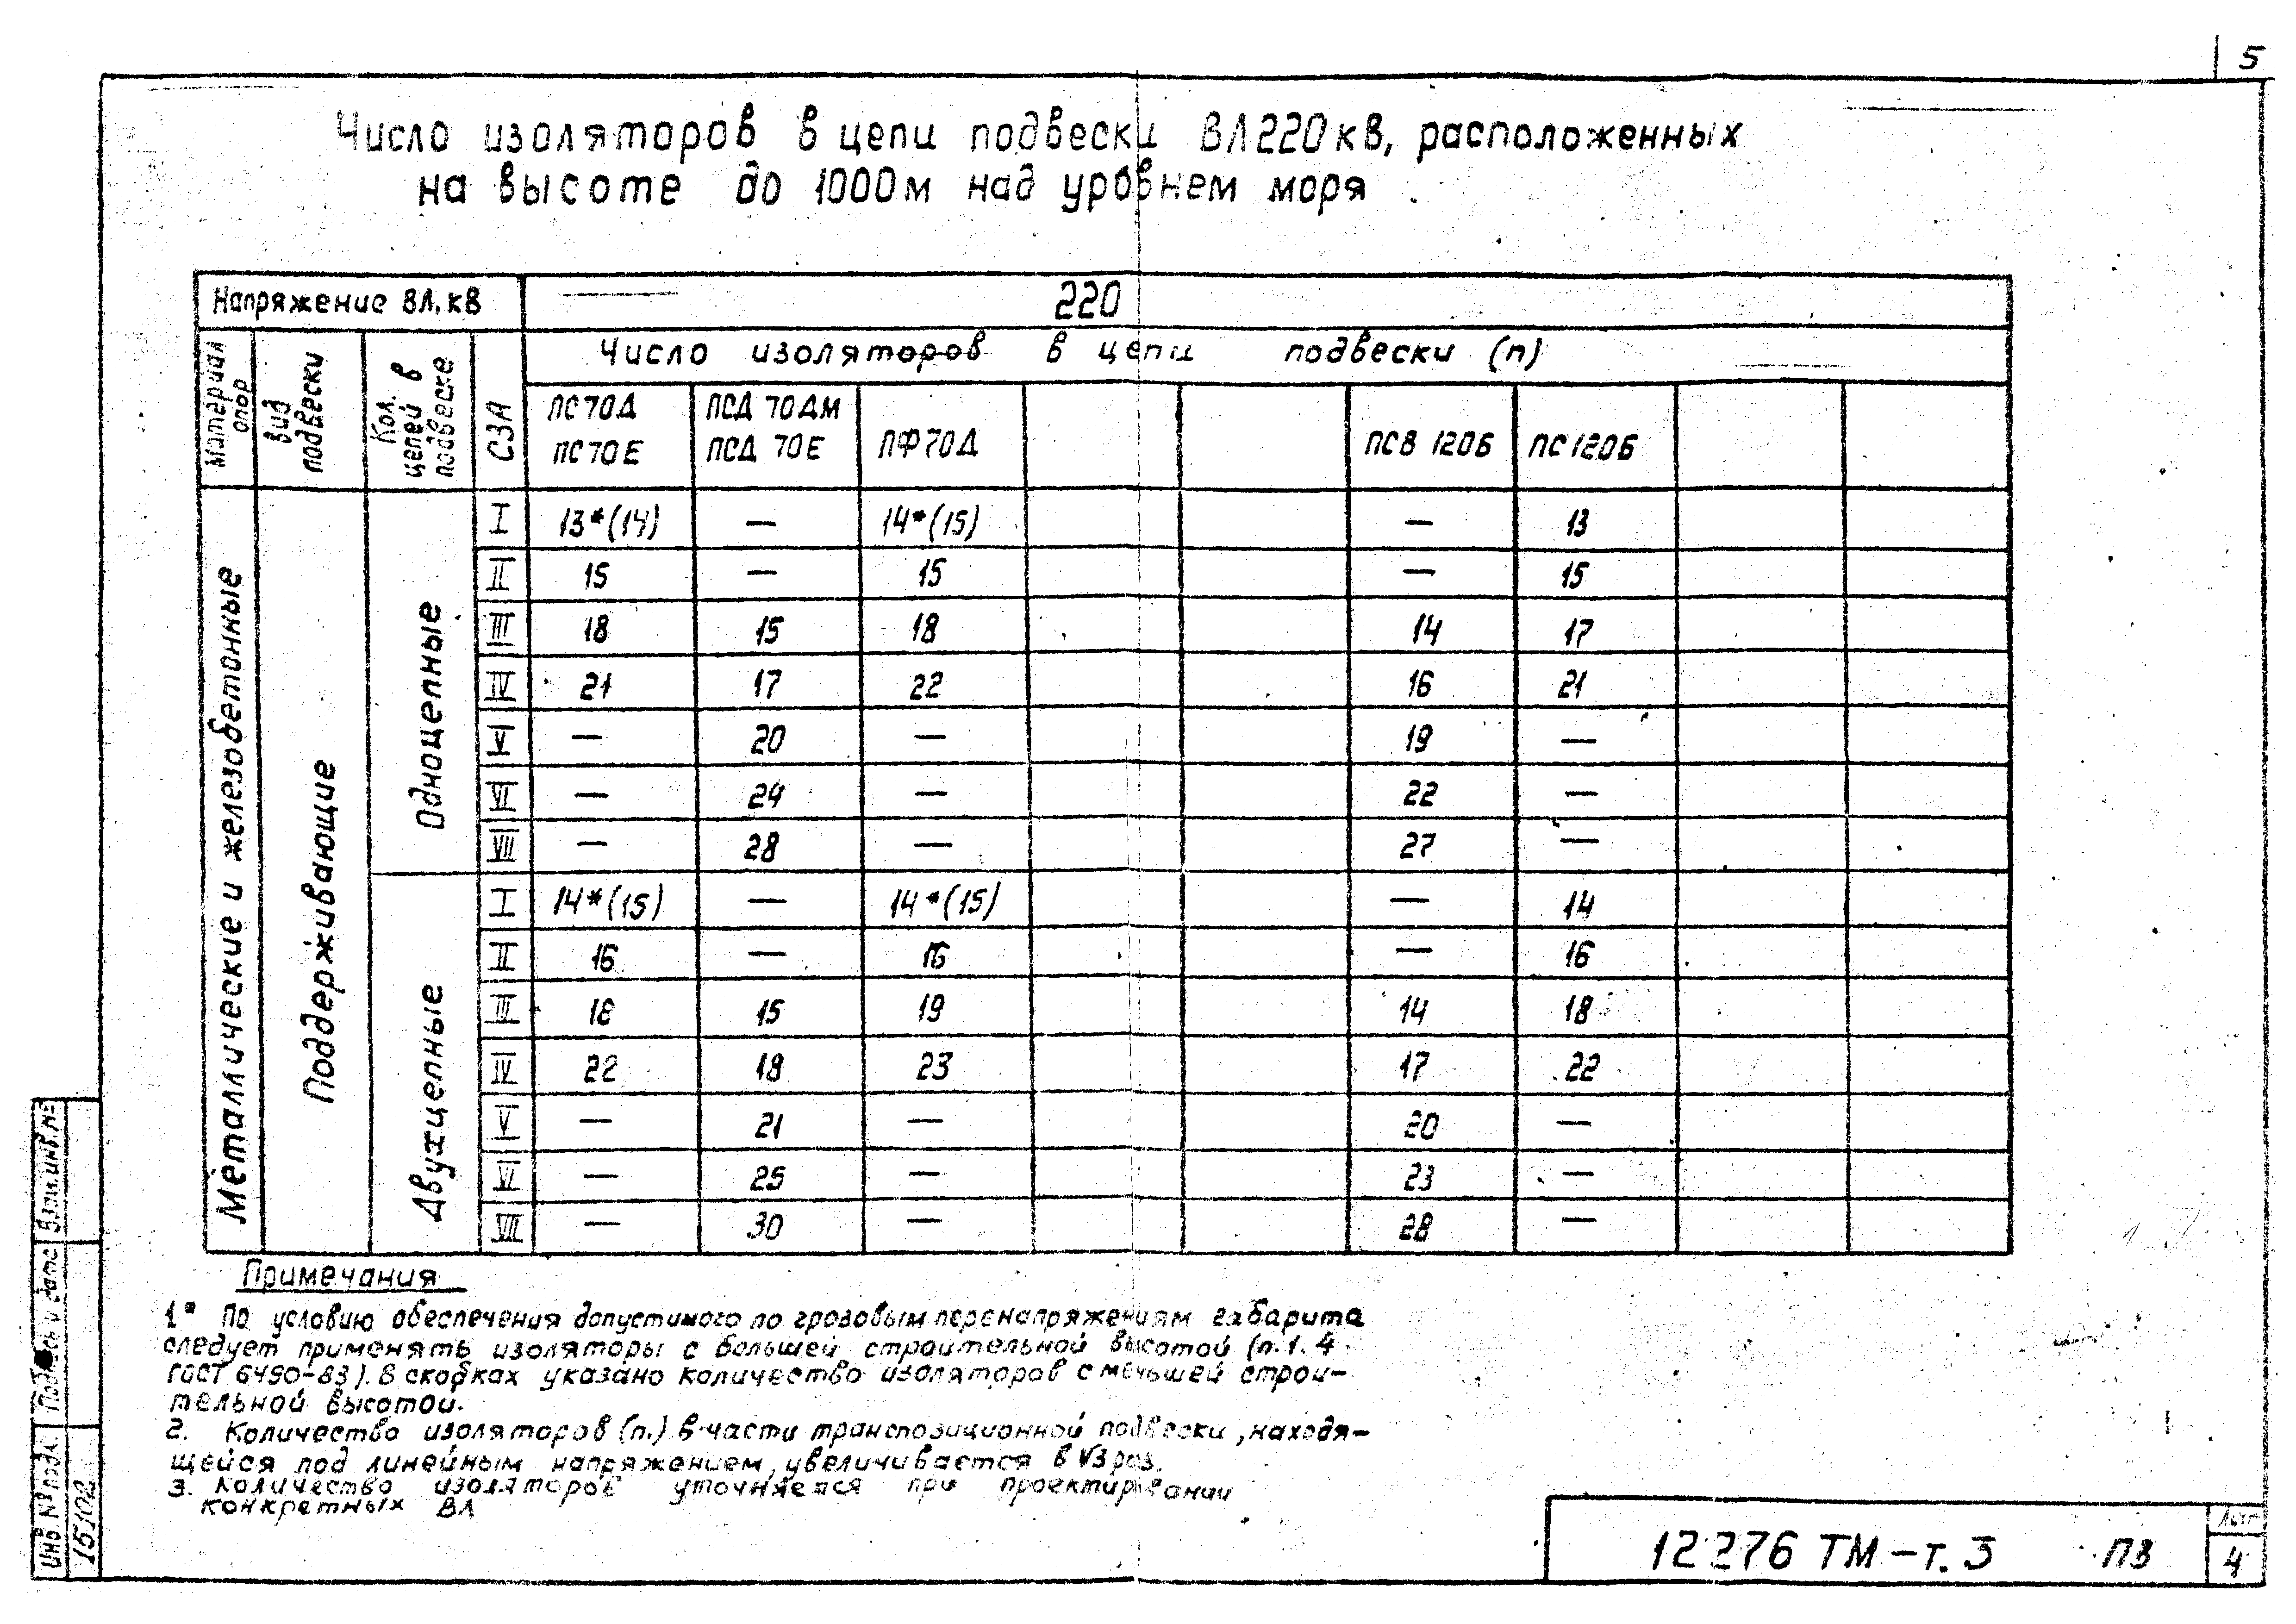 5
Число изоляторов в цепи подвески ВЛ220кВ, расположенных
на высоте до 1000м над уровнем моря
Напряжение ВЛ, кВ 220
Материал опор Вид подвески Кол. цепей в подвеске СЗА Число изоляторов в цепи подвески (n)
ПС70Д ПС70Е ПСД 70ДМ ПСД 70Е ПФ70Д ПСВ 120Б ПС120Б
Металлические и железобетонные
Поддерживающие
Одноцепные
I 13*(14) — 14*(15) — 13
II 15 — 15 — 15
III 18 15 18 14 17
IV 21 17 22 16 21
V — 20 — 19 —
VI — 24 — 22 —
VII — 28 — 27 —
Двухцепные
I 14*(15) — 14*(15) — 14
II 16 — 16 — 16
III 18 15 19 14 18
IV 22 18 23 17 22
V — 21 — 20 —
VI — 25 — 23 —
VII — 30 — 28 —
Примечания
1* По условию обеспечения допустимого по грозовым перенапряжениям габарита
следует применять изоляторы с большей строительной высотой (п.1.4
ГОСТ 6490-83). В скобках указано количество изоляторов с меньшей строи-
тельной высотой.
2. Количество изоляторов (п.) в части транспозиционной подвески, находя-
щейся под линейным напряжением, увеличивается в √3 раз.
3. Количество изоляторов уточняется при проектировании
конкретных ВЛ
12276 ТМ-т.3 ПЗ
Лист
4
Взам.инв.№
Подпись и дата
Инв. № подл.
15102